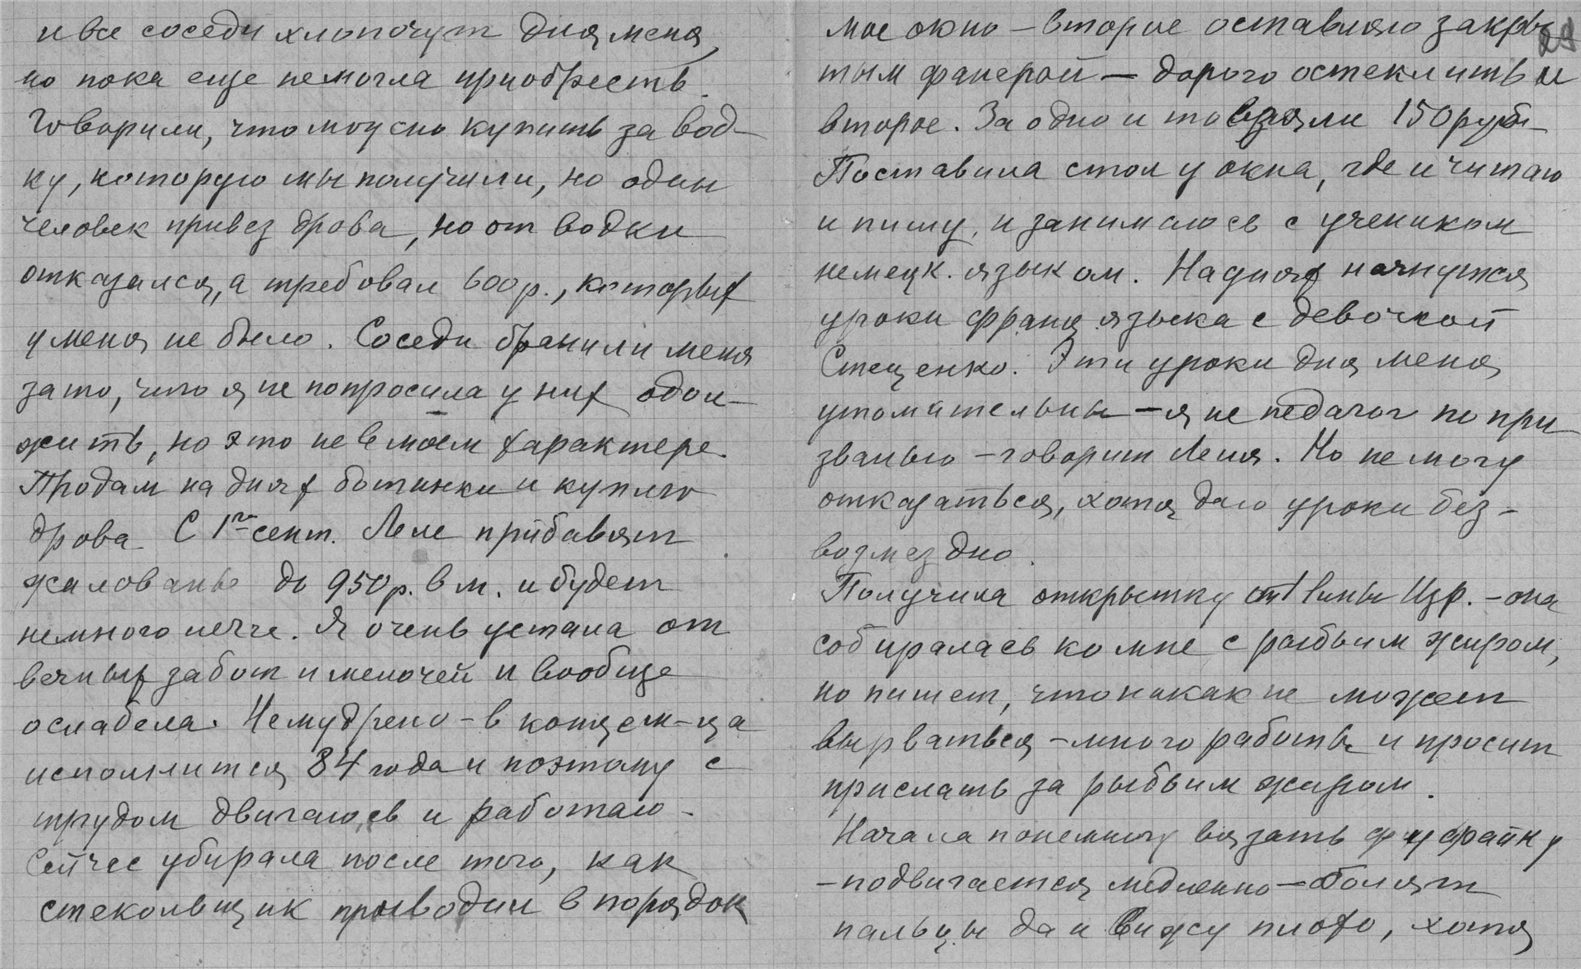 и все соседи хлопочут для меня,
но пока еще не могла приобресть.
Говорили, что можно купить за вод-
ку, которую мы получили, но один
человек привез дрова, но от водки
отказался, а требовал 600 р., которых
у меня не было. Соседи бранили меня
за то, что я не попросила у них одол-
жить, но это не в моем характере.
Продам на днях ботинки и куплю
дрова. С 1го сент. Леле прибавят
жалованье до 950 р. в м. и будет
немного легче. Я очень устала от
вечных забот и мелочей и вообще
ослабела. Не мудрено – в конце м-ца
исполнится 84 года и поэтому с
трудом двигаюсь и работаю.
Сейчас убирала после того, как
стекольщик приводил в порядок
29
мое окно – второе оставляю закры-
тым фанерой – дорого остеклить и
второе. За одно и то взяли 150 руб.
Поставила стол у окна, где и читаю
и пишу, и занимаюсь с учеником
немецк. языком. На днях начнутся
уроки франц языка с девочкой
Стеценко. Эти уроки для меня
утомительны – я не педагог по при
званью – говорит Леля. Но не могу
отказаться, хотя даю уроки без-
возмездно.
Получила открытку от Изр. – она
собиралась ко мне с рыбьим жиром,
но пишет, что никак не может
вырваться – много работы и просит
прислать за рыбьим жиром.
Начала понемногу вязать фуфайку
– подвигается медленно – болят
пальцы да и вижу плохо, хотя